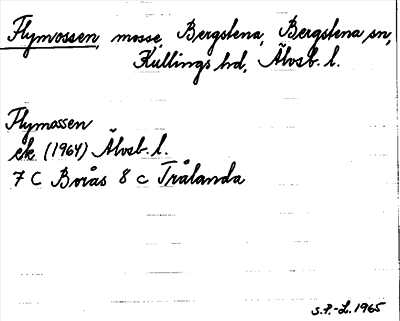 Flymossen, mosse, Bergstena, Bergstena sn,
Kullings hd, Älvsb. l.
Flymossen
ek (1964) Älvsb. l.
7 C Borås 8 c Trålanda
S.P.-L. 1965